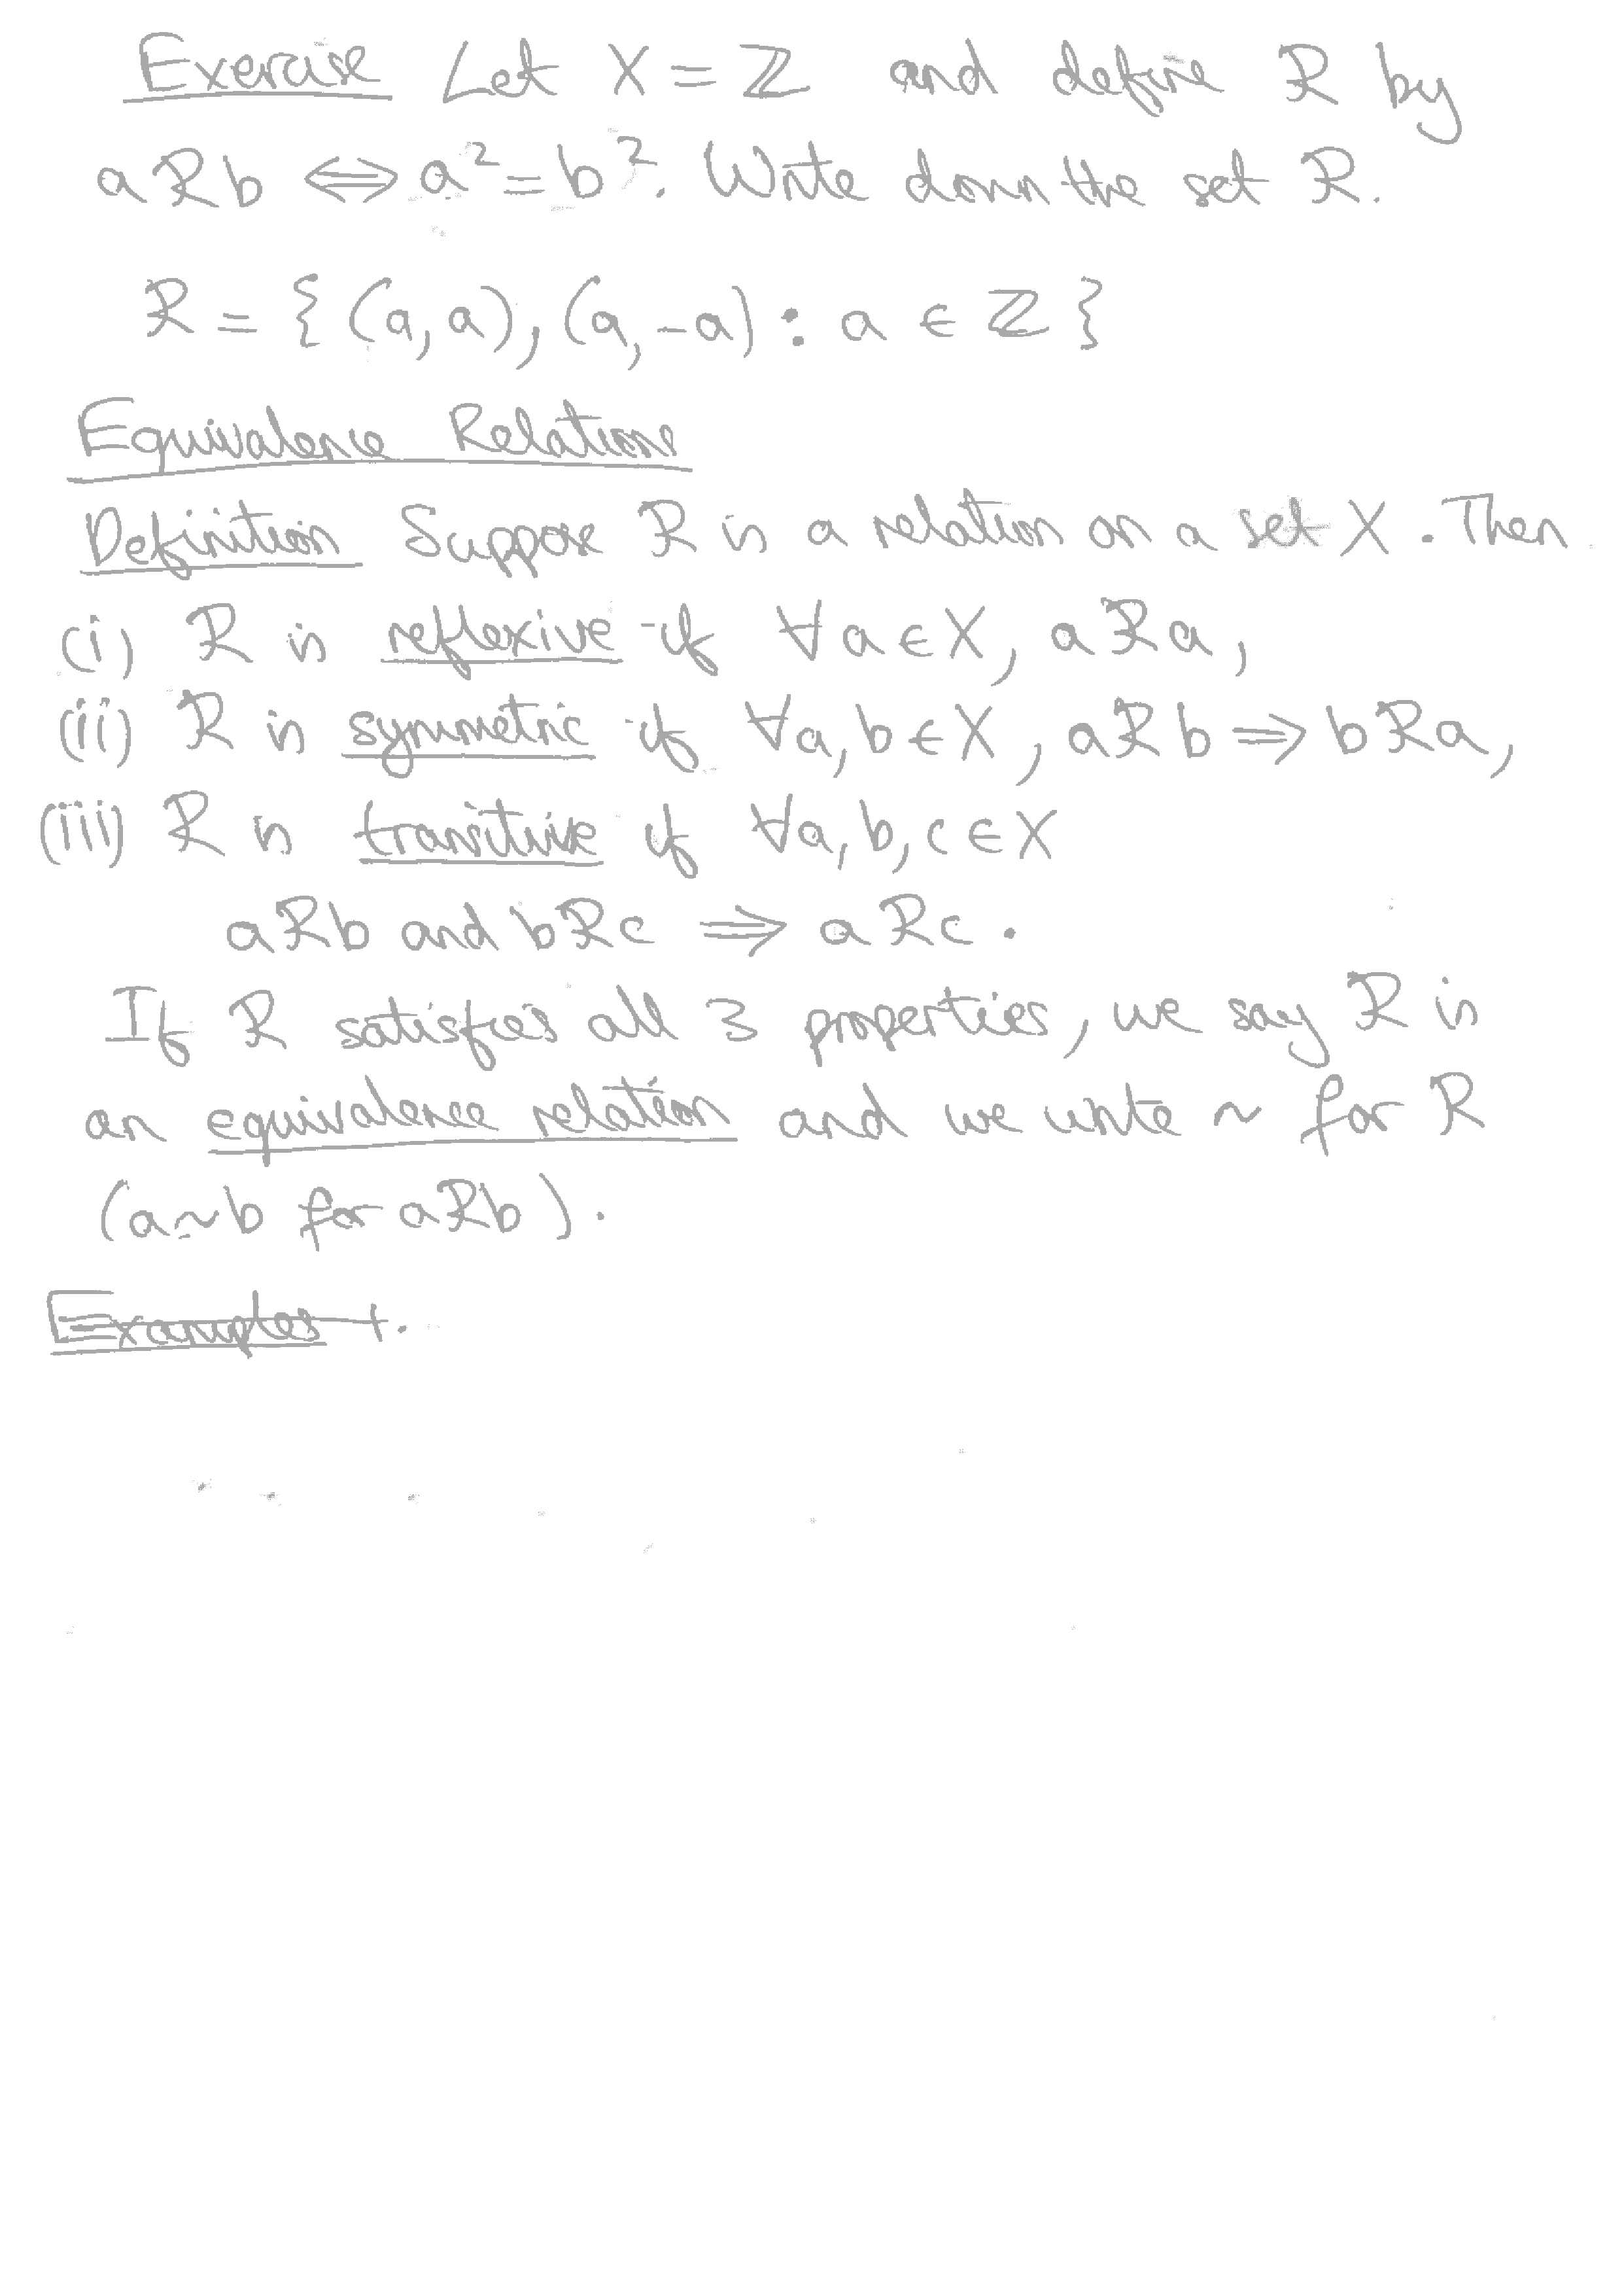 Exercise Let X = ℤ and define R by
a R b ⇔ a² = b². Write down the set R.
R = { (a, a), (a, -a) : a ∈ ℤ }
Equivalence Relations
Definition Suppose R is a relation on a set X. Then
(i) R is reflexive if ∀a ∈ X, a R a,
(ii) R is symmetric if ∀a, b ∈ X, a R b ⇒ b R a,
(iii) R is transitive if ∀a, b, c ∈ X
a R b and b R c ⇒ a R c.
If R satisfies all 3 properties, we say R is
an equivalence relation and we write ~ for R
(a ~ b for a R b).
Examples 1.